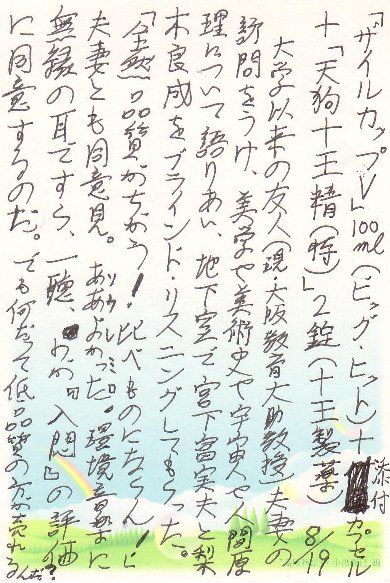 「ザイルカップV」100ml(ビッグ・ヒット)+添付カプセル
+「天狗十王精(特)」2錠(十王製薬) 8/19
大学以来の友人(現・大阪教育大助教授)夫妻の
訪問をうけ、美学や美術史や宇宙人や人間原
理について語りあい、地下室で宮下富実夫と梨
木良成をブラインド・リスニングしてもらった。
「全然品質がちがう!比べものにならん!」と
夫妻とも同意見。ああよかった。環境音楽に
無縁の耳ですら、一聴、わが『入門』の評価
に同意するのだ。でも何だって低品質の方が売れるんだ?